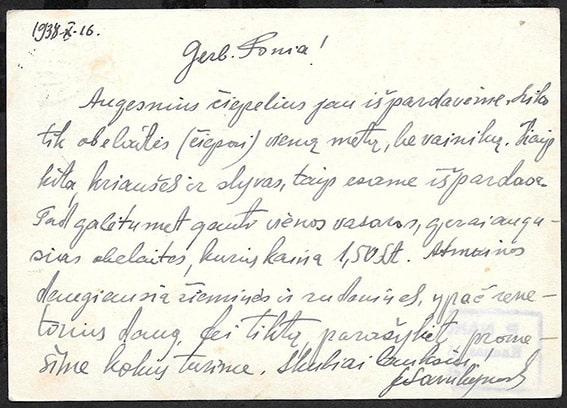 1938-X-16.
Gerb. Ponia!
Augesnius čiepelius jau išpardavėme. Liko
tik obelaitės (čiepai) vienų metų, be vainikų. Kaip
kitą, kriaušes ir slyvas, taip esame išpardavę.
Tad galėtumėt gauti vienos vasaros, gerai augu-
sias obelaites, kurių kaina 1,50 Lt. Atmainos
daugiausia žieminės ir rudeninės, ypač rene-
torius daug. Jei tiktų, parašykit, prane-
šime kokius turime. Skubiai lauksiu